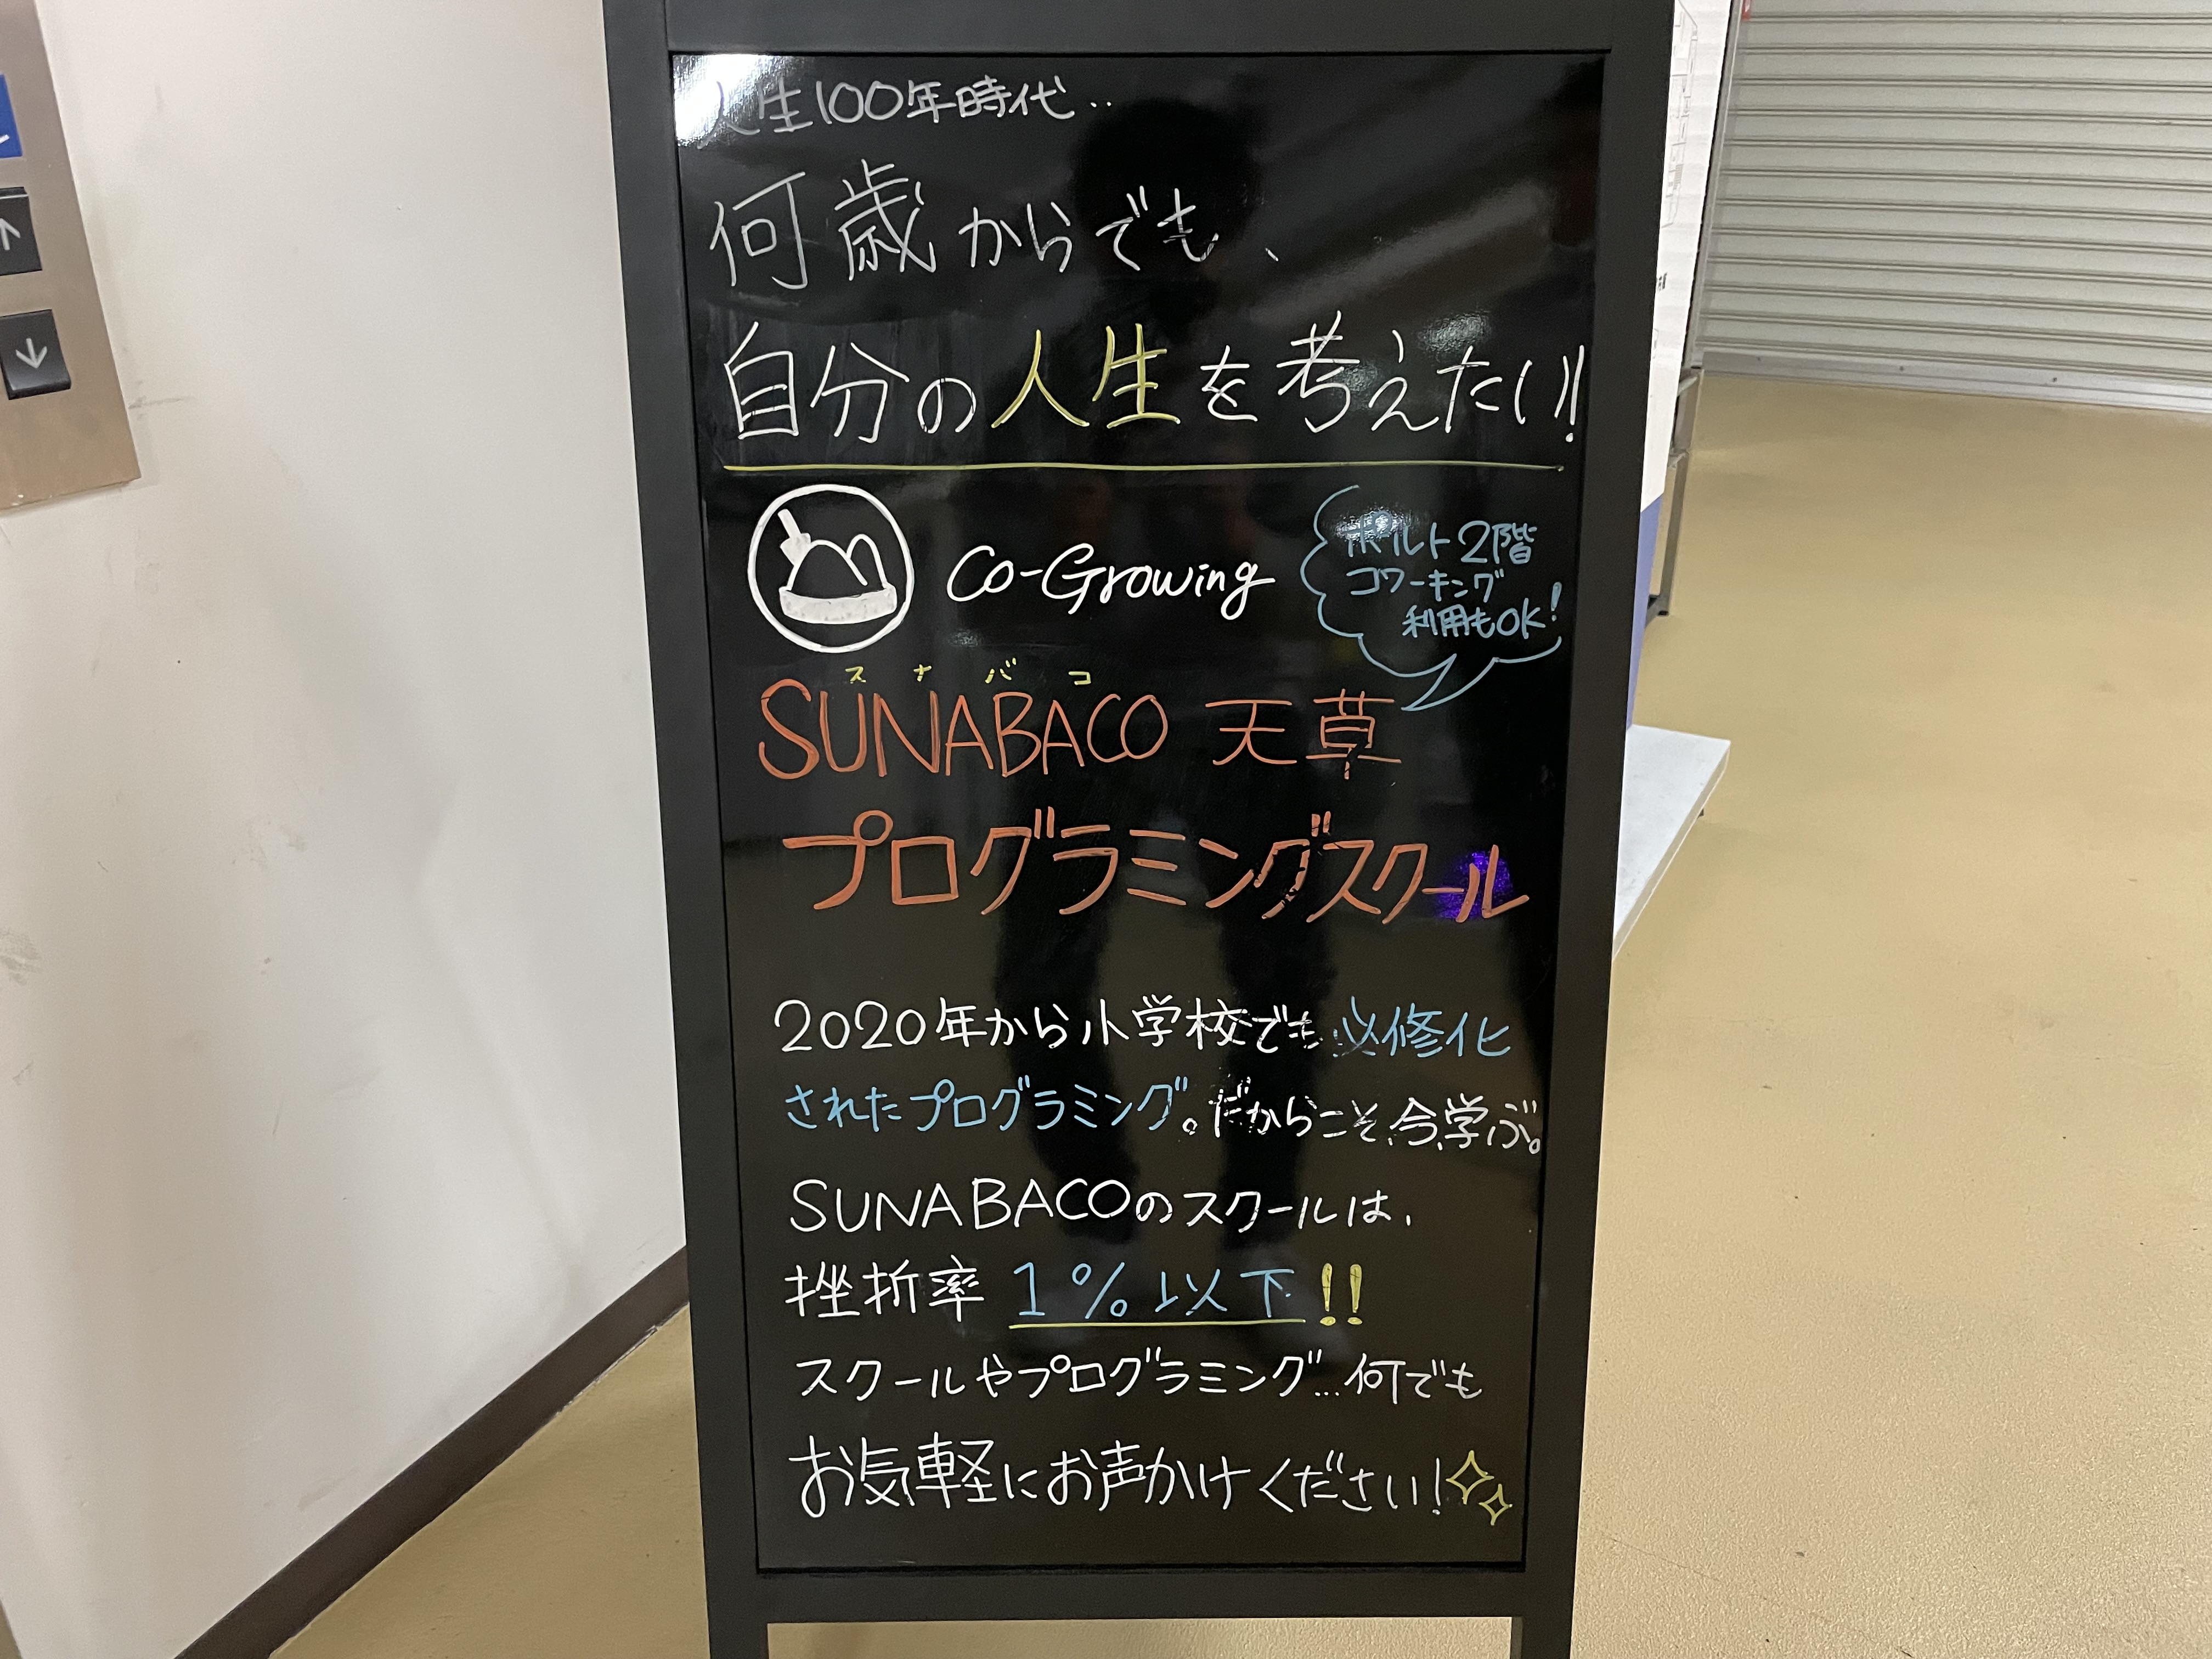 人生100年時代‥
何歳からでも、
自分の人生を考えたい!
Co-Growing
ポルト2階
コワーキング
利用もOK!
スナバコ
SUNABACO 天草
プログラミングスクール
2020年から小学校でも必修化
されたプログラミング。だからこそ、今、学ぶ。
SUNABACOのスクールは、
挫折率 1%以下!!
スクールやプログラミング…何でも
お気軽にお声かけください!